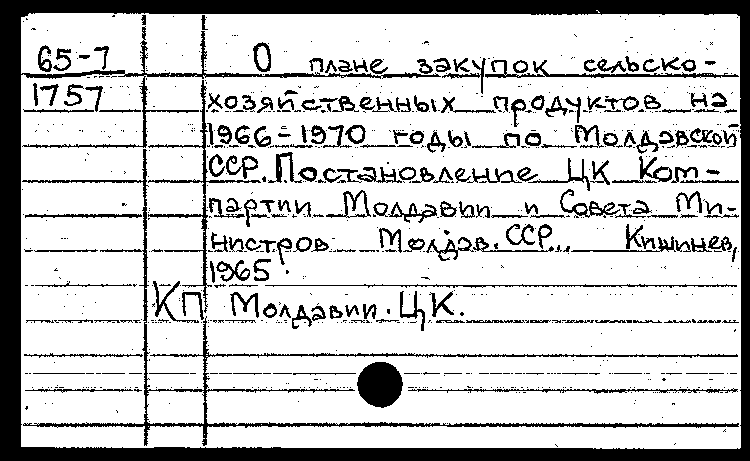 65-7 О плане закупок сельско-
1757 хозяйственных продуктов на
1966-1970 годы по Молдавской
ССР. Постановление ЦК Ком-
партии Молдавии и Совета Ми-
нистров Молдав. ССР... Кишинев,
1965.
КП Молдавии. ЦК.